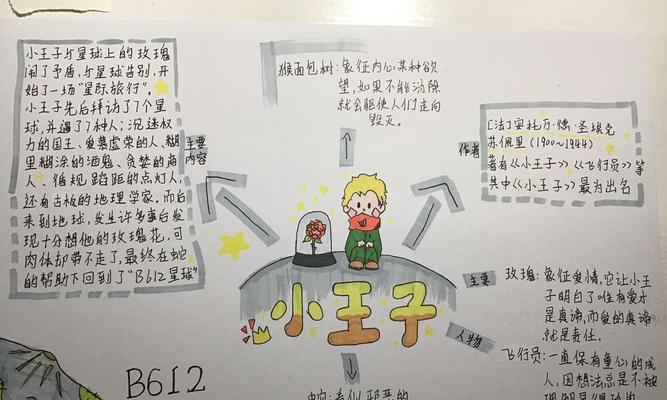 小王子与星球上的玫瑰
闹了矛盾,与星球告别,开
始了一场“星际旅行”。
小王子先后拜访了7个星
球,并遇了7种人:沉迷权
力的国王、爱慕虚荣的人、糊
里糊涂的酒鬼、贪婪的商
人、循规蹈距的点灯人,
还有古板的地理学家,而后
来到地球,发生许多事后发
现十分想他的玫瑰花,可
肉体却带不走了,最终在蛇
的帮助下回到了“B612星球”
主要
内容
猴面包树:象征内心某种欲
望,如果不能消除
就会驱使人们走向
毁灭。
作者
[法]安托万·德·圣埃克
苏佩里(1900~1944)
著有《小王子》《飞行员》等
其中《小王子》最为出名
小王子
主要
人物
玫瑰:象征爱情,它让小王
子明白了唯有爱才
是真谛,而爱的真谛
就是责任。
飞行员:一直保有童心的成
人,因想法总是不被
B612
蛇:看似邪恶的